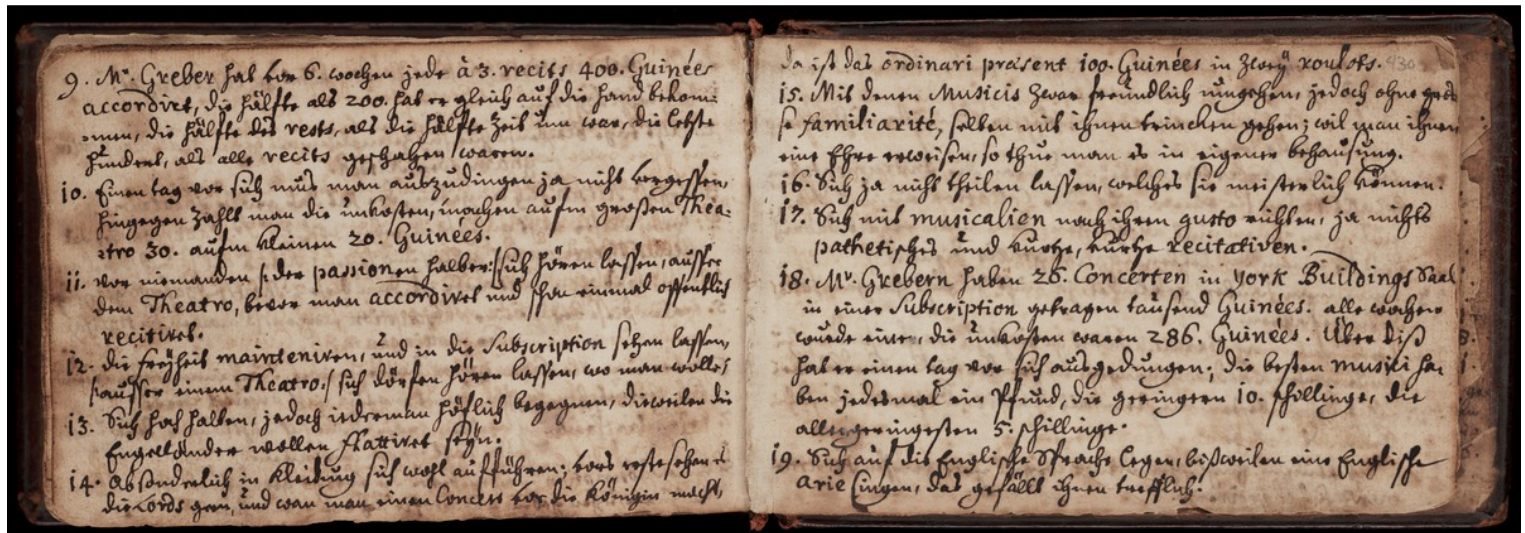 9. Mr. Greber hat vor 6. wochen jede à 3. recits 400. Guinées
accordirt, die hälfte als 200. hat er gleich auf die hand bekom=
=men, die hälfte des rests, als die hälfte Zeit üm war, die letzte
hundert, als alle recits geschehen waren.
10. Einen tag vor sich mus man auszudingen ja nicht vergessen,
hingegen Zahlt man die ünkosten, machen aufm großen Thea=
=tro 30. aufm kleinen 20. Guinées.
11. vor niemanden /: der passionen halber :/ sich hören lassen, ausser
dem Theatro, bevor man accordiret und schon einmal offentlich
recitiret.
12. die freyheit mainteniren, und in die Subscription setzen lassen,
/: ausser einem Theatro :/ sich dörfen hören lassen, wo man wolle,
13. Sich hoch halten, jedoch iederman höflich begegnen, dieweilen die
Engelländer wollen flattiret seyn.
14. Absonderlich in Kleidung sich wohl aufführen;
die Lords gern, und wan man einen Concert vor die Königin macht,
da ist das ordinari præsent 100. Guinées in zwey roulots. 430
15. Mit denen Musicis zwar freundlich umgehen, jedoch ohne gros
se familiarité, selten mit ihnen trincken gehen; wil man ihnen
eine Ehre erweisen, so thue man es in eigener behausung.
16. Sich ja nicht theilen lassen, welches sie meisterlich können.
17. Sich mit musicalien nach ihrem gusto richten, ja nichts
pathetisches und kurtze, kurtze recitativen.
18. Mr. Grebern haben 26. Concerten in York Buildings Saal
in einer Subscription getragen tausend Guinées. alle wochen
wurde eine, die ünkosten waren 286. Guinées. Über diß
hat er einen tag vor sich ausgedungen; die besten musici ha
ben jedesmal ein Pfund, die geringern 10. schillinge, die
allergeringesten 5. schillinge.
19. Sich auf die Englische Sprache legen, bißweilen eine Englische
Arie singen, das gefällt ihnen trefflich.